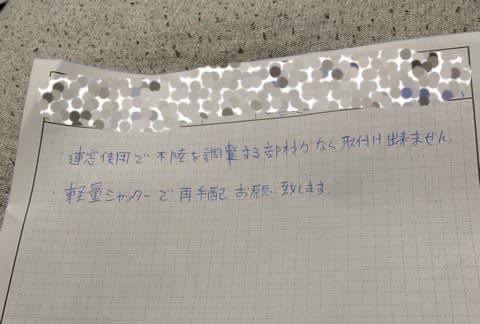 連窓使用で不陸を調整する部材がなく取付け出来ません。
軽量シャッターで再手配お願い致します。